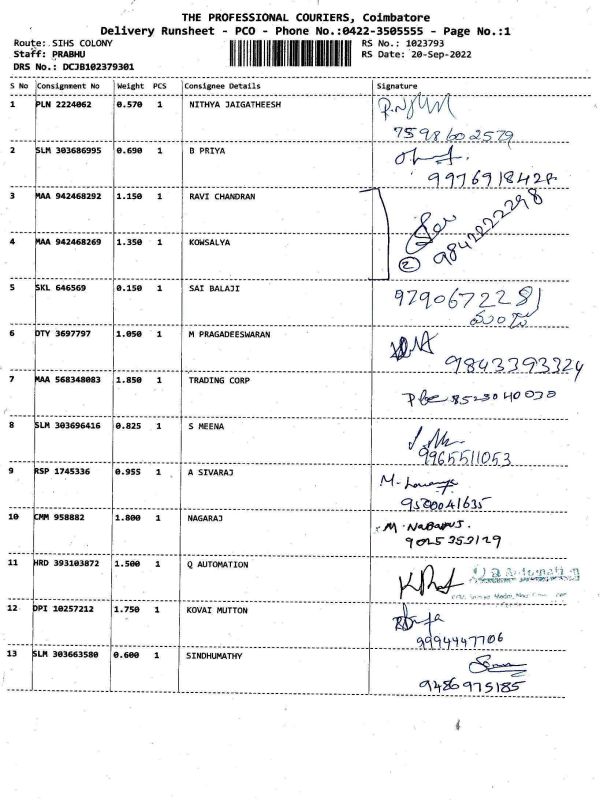 THE PROFESSIONAL COURIERS, Coimbatore
Delivery Runsheet - PCO - Phone No.:0422-3505555 - Page No.:1
Route: SIHS COLONY
RS No.: 1023793
Staff: PRABHU
RS Date: 20-Sep-2022
DRS No.: DCJB102379301
S No Consignment No Weight PCS Consignee Details Signature
1 PLN 2224062 0.570 1 NITHYA JAIGATHEESH
7598602579
2 SLM 303686995 0.690 1 B PRIYA
9976918428
3 MAA 942468292 1.150 1 RAVI CHANDRAN
9842222298
4 MAA 942468269 1.350 1 KOWSALYA
2
5 SKL 646569 0.150 1 SAI BALAJI
9790672281
6 DTY 3697797 1.050 1 M PRAGADEESWARAN
9843393324
7 MAA 568348083 1.850 1 TRADING CORP
8523040030
8 SLM 303696416 0.825 1 S MEENA
9965511053
9 RSP 1745336 0.955 1 A SIVARAJ
M.
9500041635
10 CMM 958882 1.800 1 NAGARAJ
M.
9025353129
11 HRD 393103872 1.500 1 Q AUTOMATION
12 DPI 10257212 1.750 1 KOVAI MUTTON
9994447706
13 SLM 303663580 0.600 1 SINDHUMATHY
9486975185